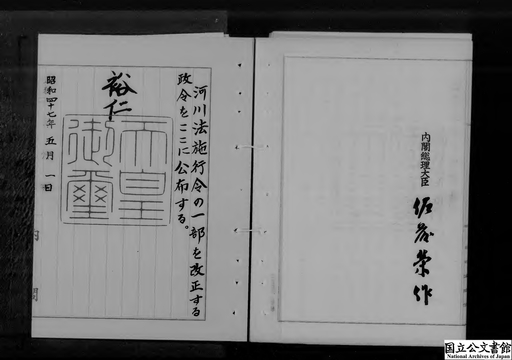 河川法施行令の一部を改正する
政令をここに公布する。
裕仁
天皇御璽
昭和四十七年五月一日
内閣
内閣総理大臣 佐藤榮作
国立公文書館
National Archives of Japan